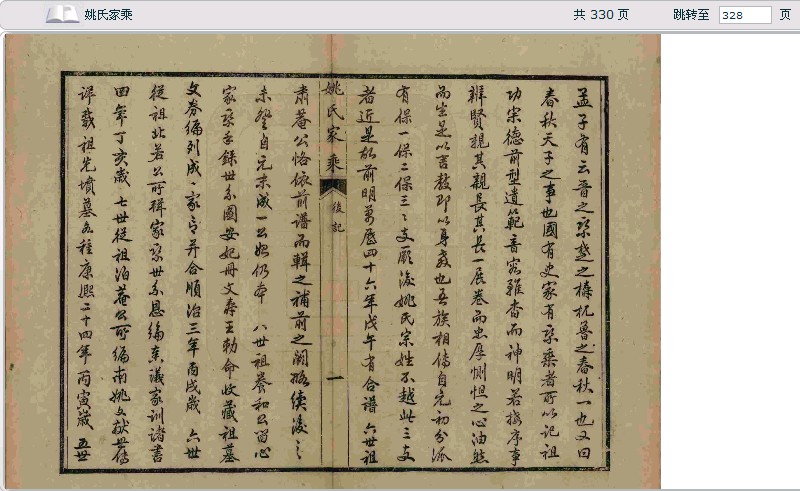 姚氏家乘
共 330 页
跳转至 328 页
孟子有云晋之乘楚之檮杌魯之春秋一也又曰
春秋天子之事也國有史家有乘乘者所以記祖
功宗德前型遺範音容雖杳而神明若接序事
辨賢親其親長其長一展卷而忠厚惻怛之心油然
而生是以言教即以身教也吾族相傳自元初分派
有保一保二保三三支厥後姚氏宗姓不越此三支
者近是於前明萬曆四十六年戊午有合譜六世祖
姚氏家乘
後記
一
肅菴公恪依前譜而輯之補前之闕略續後之
未登自元末成一公始仍本八世祖養和公留心
家乘手錄世系圖安妃冊文壽王勅命收藏祖墓
文券編列成一家言并合順治三年丙戌歲六世
從祖北若公所輯家乘世系恩綸奏議家訓諸書
四年丁亥歲七世從祖泊菴公所編南姚文獻世傳
詳載祖先墳墓各種康熙二十四年丙寅歲五世